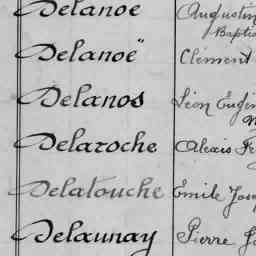 Delanoe Augustin
Baptis
Delanoë Clément
Delanos Léon Eugèn
Delaroche Alexis Fe
Delatouche Emile Jose
Delaunay Pierre